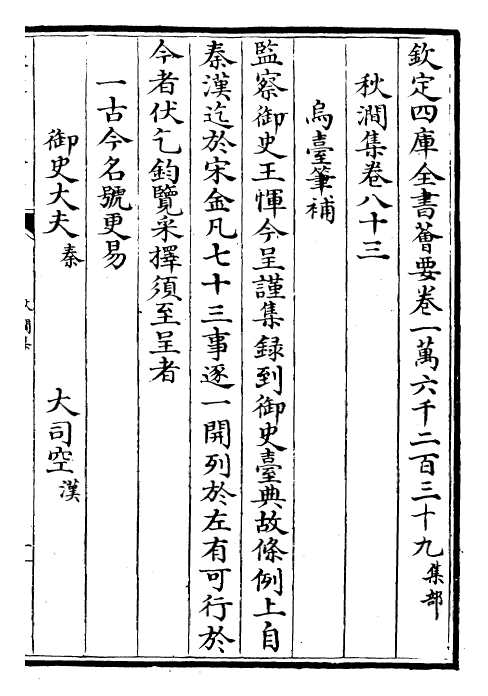 欽定四庫全書薈要卷一萬六千二百三十九集部
秋澗集卷八十三
烏臺筆補
監察御史王惲今呈謹集録到御史臺典故條例上自
秦漢迄於宋金凡七十三事逐一開列於左有可行於
今者伏乞鈞覽采擇須至呈者
一古今名號更易
御史大夫秦　大司空漢